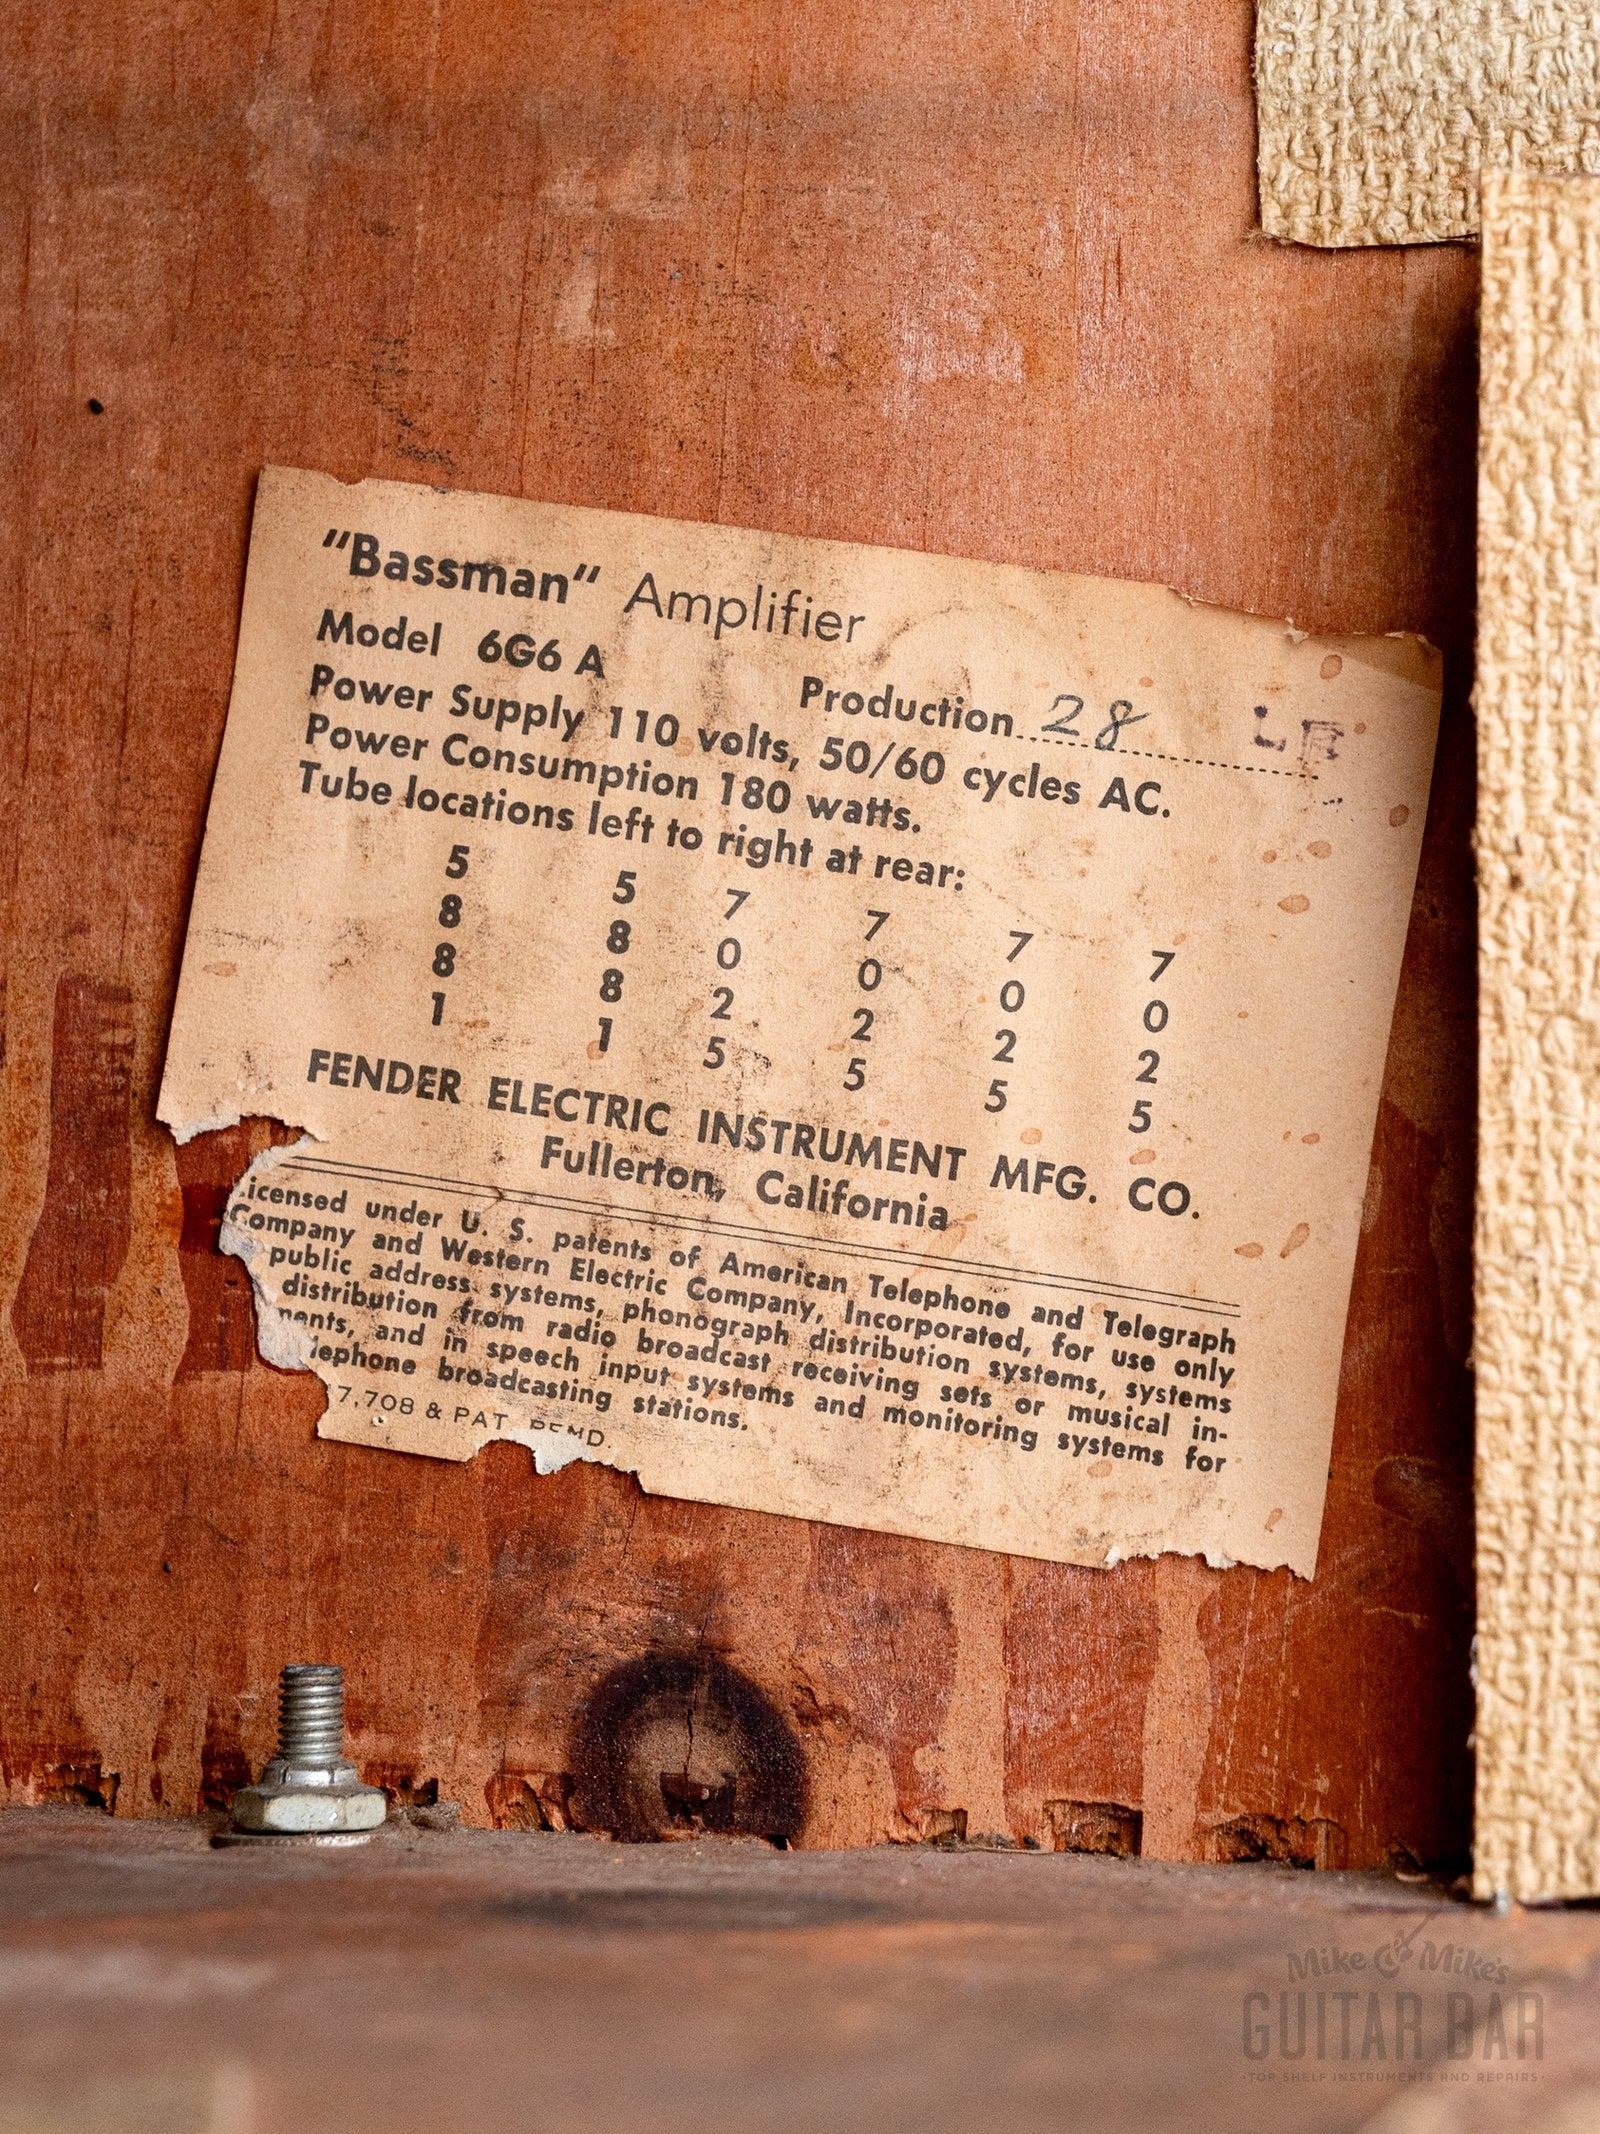 "Bassman" Amplifier
Model 6G6 A
Production 28 LB
Power Supply 110 volts, 50/60 cycles AC.
Power Consumption 180 watts.
Tube locations left to right at rear:
5 5 7 7 7 7
8 8 0 0 0 0
8 8 2 2 2 2
1 1 5 5 5 5
FENDER ELECTRIC INSTRUMENT MFG. CO.
Fullerton, California
icensed under U. S. patents of American Telephone and Telegraph
Company and Western Electric Company, Incorporated, for use only
public address systems, phonograph distribution systems, systems
distribution from radio broadcast receiving sets or musical in-
ments, and in speech input systems and monitoring systems for
lephone broadcasting stations.
7,708 & PAT. PEND.
Mike & Mike's
GUITAR BAR
·TOP SHELF INSTRUMENTS AND REPAIRS·